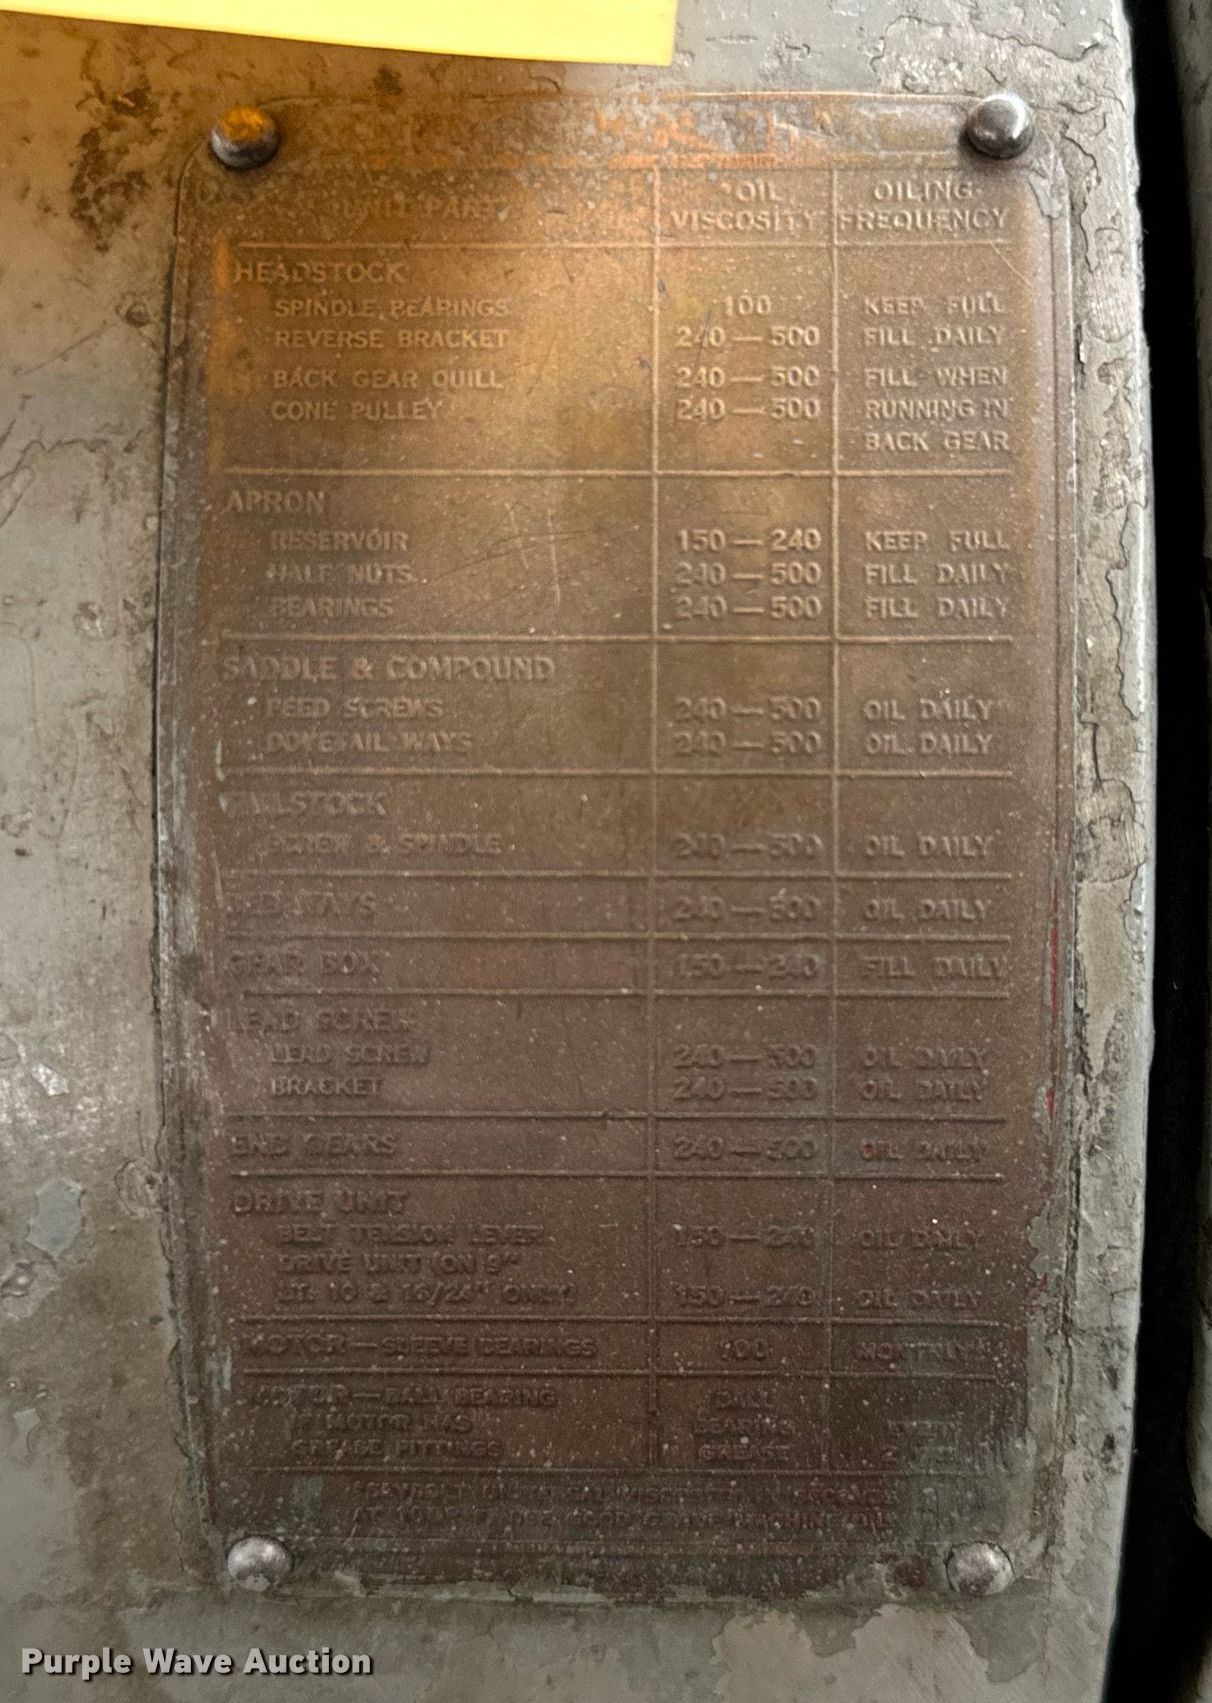 UNIT PART OIL VISCOSITY OILING FREQUENCY
HEADSTOCK
SPINDLE BEARINGS 100 KEEP FULL
REVERSE BRACKET 240 — 500 FILL DAILY
BACK GEAR QUILL 240 — 500 FILL WHEN
CONE PULLEY 240 — 500 RUNNING IN
BACK GEAR
APRON
RESERVOIR 150 — 240 KEEP FULL
HALF NUTS 240 — 500 FILL DAILY
BEARINGS 240 — 500 FILL DAILY
SADDLE & COMPOUND
FEED SCREWS 240 — 500 OIL DAILY
DOVETAIL WAYS 240 — 500 OIL DAILY
TAILSTOCK
SCREW & SPINDLE 240 — 500 OIL DAILY
BED WAYS 240 — 500 OIL DAILY
GEAR BOX 150 — 240 FILL DAILY
LEAD SCREW
LEAD SCREW 240 — 500 OIL DAILY
BRACKET 240 — 500 OIL DAILY
END GEARS 240 — 500 OIL DAILY
DRIVE UNIT
BELT TENSION LEVER 150 — 240 OIL DAILY
DRIVE UNIT (ON 9"
LT. 10 & 16/24" ONLY) 150 — 240 OIL DAILY
MOTOR — SLEEVE BEARINGS 100 MONTHLY
MOTOR — BALL BEARING BALL
IF MOTOR HAS BEARING
GREASE FITTINGS GREASE
SAYBOLT UNIVERSAL VISCOSITY IN SECONDS
AT 100° F. USE GOOD GRADE MACHINE OIL
Purple Wave Auction